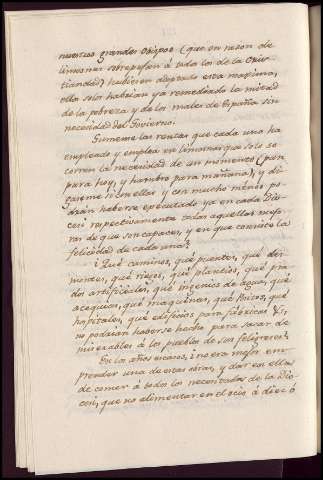 nuestros grandes Obispos (que en razon de
limosnas sobrepujan á todos los de la Cris-
tiandad) hubieran adoptado esta maxima,
ellos solos habrian ya remediado la mitad
de la pobreza y de los males de España sin
necesidad del Govierno.
Sumense las rentas que cada uno ha
empleado y emplea en limosnas que solo so-
corren la necesidad de un momento (pan
para hoy, y hambre para mañana), y dí-
gaseme si con ellas y con mucho menos po-
drán haberse executado ya en cada Dio-
cesi respectivamente todas aquellas mejo-
ras de que son capaces, y en que consiste la
felicidad de cada una?
¿Qué caminos, qué puentes, qué des-
montes, qué riegos, qué plantíos, qué pra-
dos artificiales, qué ingenios de agua, qué
acequias, qué maquinas, qué Puertos, qué
hospitales, qué edificios para fabricas &c,
no podrian haberse hecho para sacar de
miserables á los pueblos de sus feligreses?
En los años escasos, ¿no era mejor em-
prender una de estas obras, y dar en ellas
de comer á todos los necesitados de la Dio-
cesi, que no alimentar en el ocio á diez ó